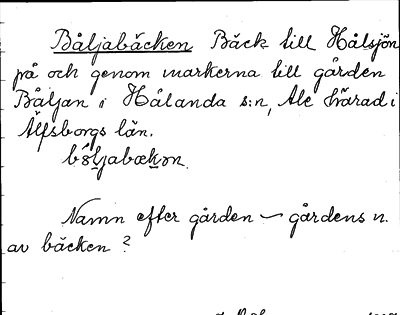 Båljabäcken Bäck till Hålsjön
på och genom markerna till gården
Båljan i Hålanda s:n, Ale härad i
Älfsborgs län.
Namn efter gården – gårdens n.
av bäcken?